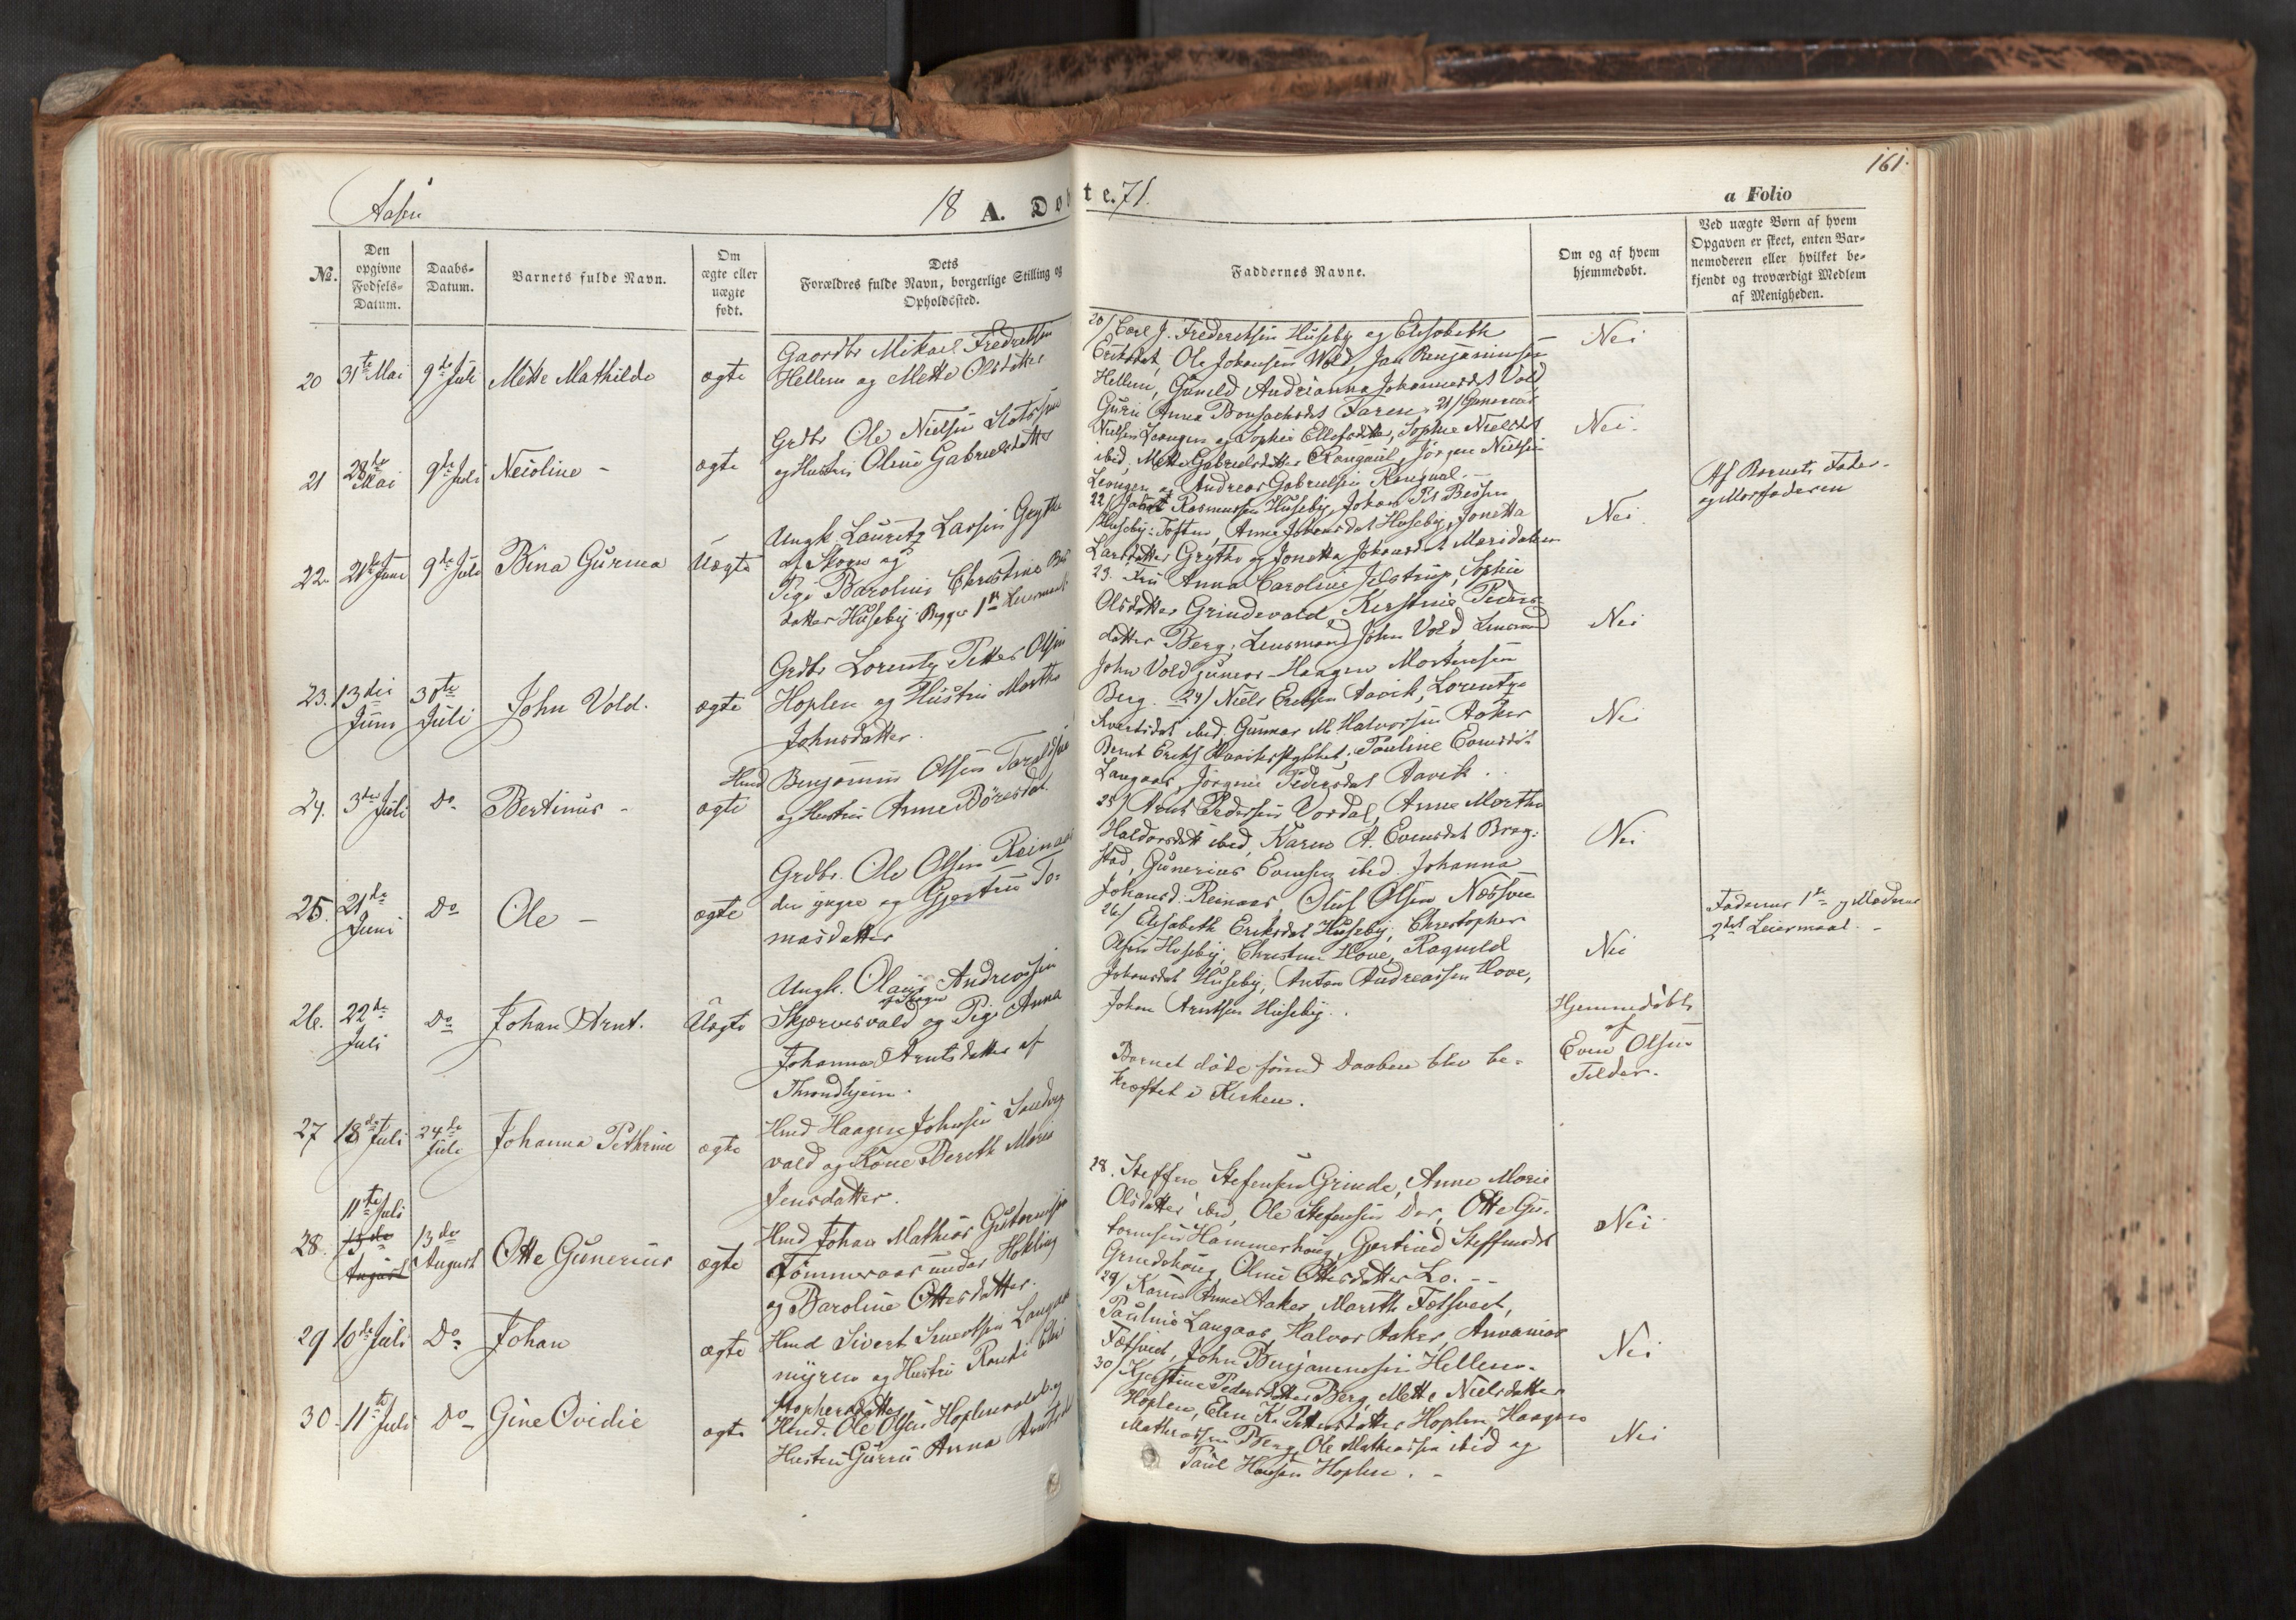 161.
Aasen
18 A. Døbte. 71.
a Folio
№.
Den
opgivne
Fødsels-
Datum.
Daabs-
Datum.
Barnets fulde Navn.
Om
ægte eller
uægte
født.
Dets
Forældres fulde Navn, borgerlige Stilling og
Opholdssted.
Faddernes Navne.
Om og af hvem
hjemmedøbt.
Ved uægte Børn af hvem
Opgaven er skeet, enten Bar-
nemoderen eller hvilket be-
kjendt og troværdigt Medlem
af Menigheden.
20 31te Mai 9de Juli Mette Mathilde ægte
Gaardbr Mikael Fredriksen
Hellem og Mette Olsdatter
20/ Carl J. Frederiksen Huseby og Elisabeth
Eriksdat, Ole Johansen Wold, Jan Benjaminsen
Hellem, Gunild Andrianna Johannesdt Vold
Guru Anna Faren
Nei
21 28de Mai 9de Juli Neioline - ægte
Grdbr Ole Nielsen
og Hustru Oline Gabrielsdatter
21/
Nielsen Leangen og Sophie Ellefsdatter, Sophie Nielsdt
ibid, Mette Gabrielsdatter, Jørgen Nielsen
Leangen og Andreas Gabrielsen
Nei.
22. 21de Juni 9de Juli Bina Gurina Uægte
Ungk. Lauritz Larsen Grythe
af Skogn og
Pige Baroline Christine
datter Huseby. Begges 1ste Leiermaal
22/ Rasmussen Huseby, Johan
Huseby: Toften, Anne Johansdat Huseby, Jonetta
Larsdatter Grythe og Jonetta Johansdt Maridalen
Nei.
Af Barnets Fader
og Morfaderen
23. 13die Juni 30te Juli John Vold. ægte
Grdbr Lorentz Petter Olsen
Hoplen og Hustru Martha
Johnsdatter.
23. Fru Anna Caroline Jelstrup, Sophie
Olsdatter Grindevald, Kirstine Peders-
datter Berg, Lensmand John Vold, Lensmand
John Vold junior Haagen Mortensen
Berg.
Nei
24. 3die Juli Do Bertinus - ægte
Hmd Benjamin Olsen
og Hustru Anne Børesdat
24/ Niels Eriksen Aavik, Lorentze
ibid. Gunnar M. Halvorsen Aaker
Bernt Eriks , Pauline Evensdt
Langaas, Jørgine Pedersdat Aavik.
Nei
25. 21de Juni Do Ole - ægte
Grdbr. Ole Olsen Reinaas
den yngre og Gjertru To-
masdatter
25/ Arnt Pedersen Vordal, Anne Martha
Haldorsdt ibid, Karen A. Evensdt Brag-
stad, Gunerius Evensen ibid. Johanna
Johansd. Reinaas, Oluf Olsen
Nei
26. 22de Juli Do Johan Arnt. Uægte
Ungk. Olaus Andreassen
af Skogn
Skjervesvald og Pige Anna
Johanna Arntsdatter af
Throndhjem.
26/ Elisabeth Eriksdt Huseby, Christopher
Olsen Huseby, Christine Hove, Ragnild
Johansdt Huseby, Anton Andreassen Hove,
Johan Arntsen Huseby.
Nei
Faderens 1ste og Moderens
2det Leiermaal. -
27 18de Juli 24de Juli Johanna Pethrine ægte
Hmd Haagen Johnsen
vald og Kone Bereth Maria
Jensdatter.
Barnet døde førend Daaben blev be-
kræftet i Kirken.
Hjemmedøbt
af
Even Olsen
Felder.
28. 11te Juli
13de August
13de August Otte Gunerius ægte
Hmd Johan Mathias Guttormsen
Tømmeraas under Hokling
og Baroline Ottesdatter.
28. Steffen Stefensen Grinde, Anne Marie
Olsdatter ibid, Ole Stefensen Dor, Otte Gu-
tormsen Hammerhaug, Gjertrud Steffensdt
Grindehaug, Oline Ottesdatter Lo. - -
Nei
29 10de Juli Do Johan ægte
Hmd Sivert Sivertsen Langaas
myren og Hustru
stophersdatter
29/ Karen Anna Aaker, Mareth Fætsveet,
Pauline Langaas, Halvor Aaker,
Fætsveet, John Benjaminsen Hellem.
Nei
30. 11te Juli Do - Gine Ovidie ægte
Hmd. Ole Olsen Hoplenvald og
Hustru Guru Anna
30/ Kjerstine Pedersdatter Berg, Mette Nielsdatter
Hoplen, Elen K. Pettersdatter Hoplen, Haagen
Mathiassen Berg, Ole Mathiassen ibid og
Paul Hansen Hoplen. -
Nei